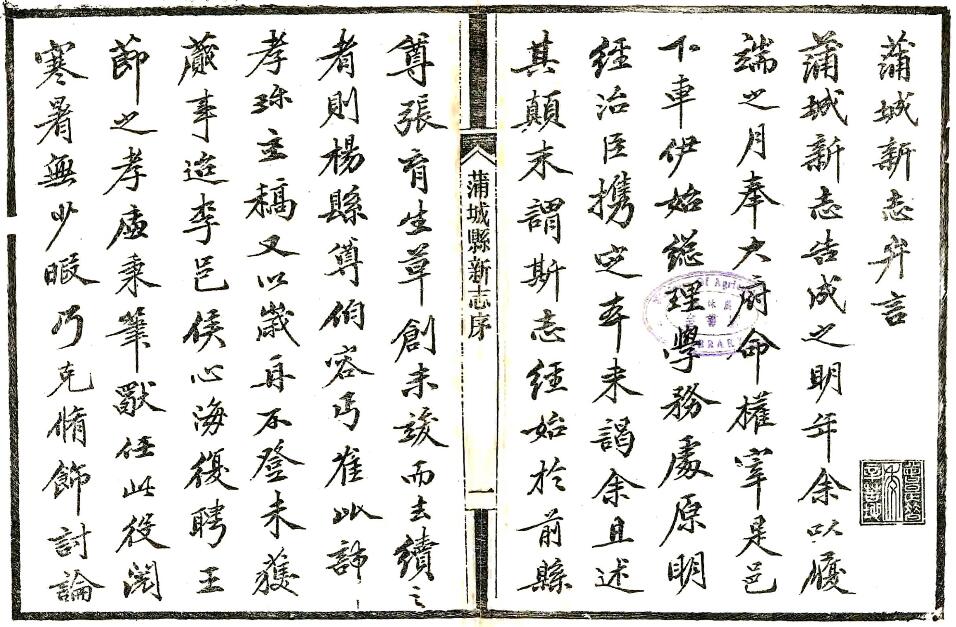 蒲城新志弁言
蒲城新志告成之明年余以履
端之月奉大府命權宰是邑
下車伊始總理學務處原明
經治臣攜定本來謁余且述
其顛末謂斯志經始於前縣
蒲城縣新志序
一
尊張育生草創未竣而去續之
者則楊縣尊伯容
孝珍主稿又以歲再不登未獲
蕆事迨李邑侯心海復聘王
節之孝廉秉筆任此役閱
寒暑無少暇乃克脩飾討論